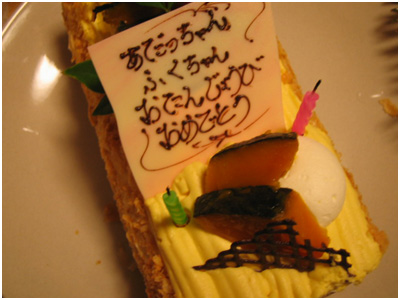 あだっちゃん
ふくちゃん
おたんじょうび
おめでとう